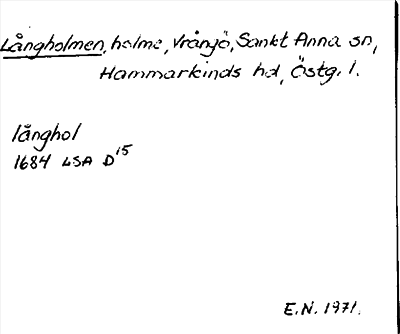 Långholmen, holme, Vrånjö, Sankt Anna sn,
Hammarkinds hd, Östg. l.
långhol
1684 LSA D 15
E.N. 1971.